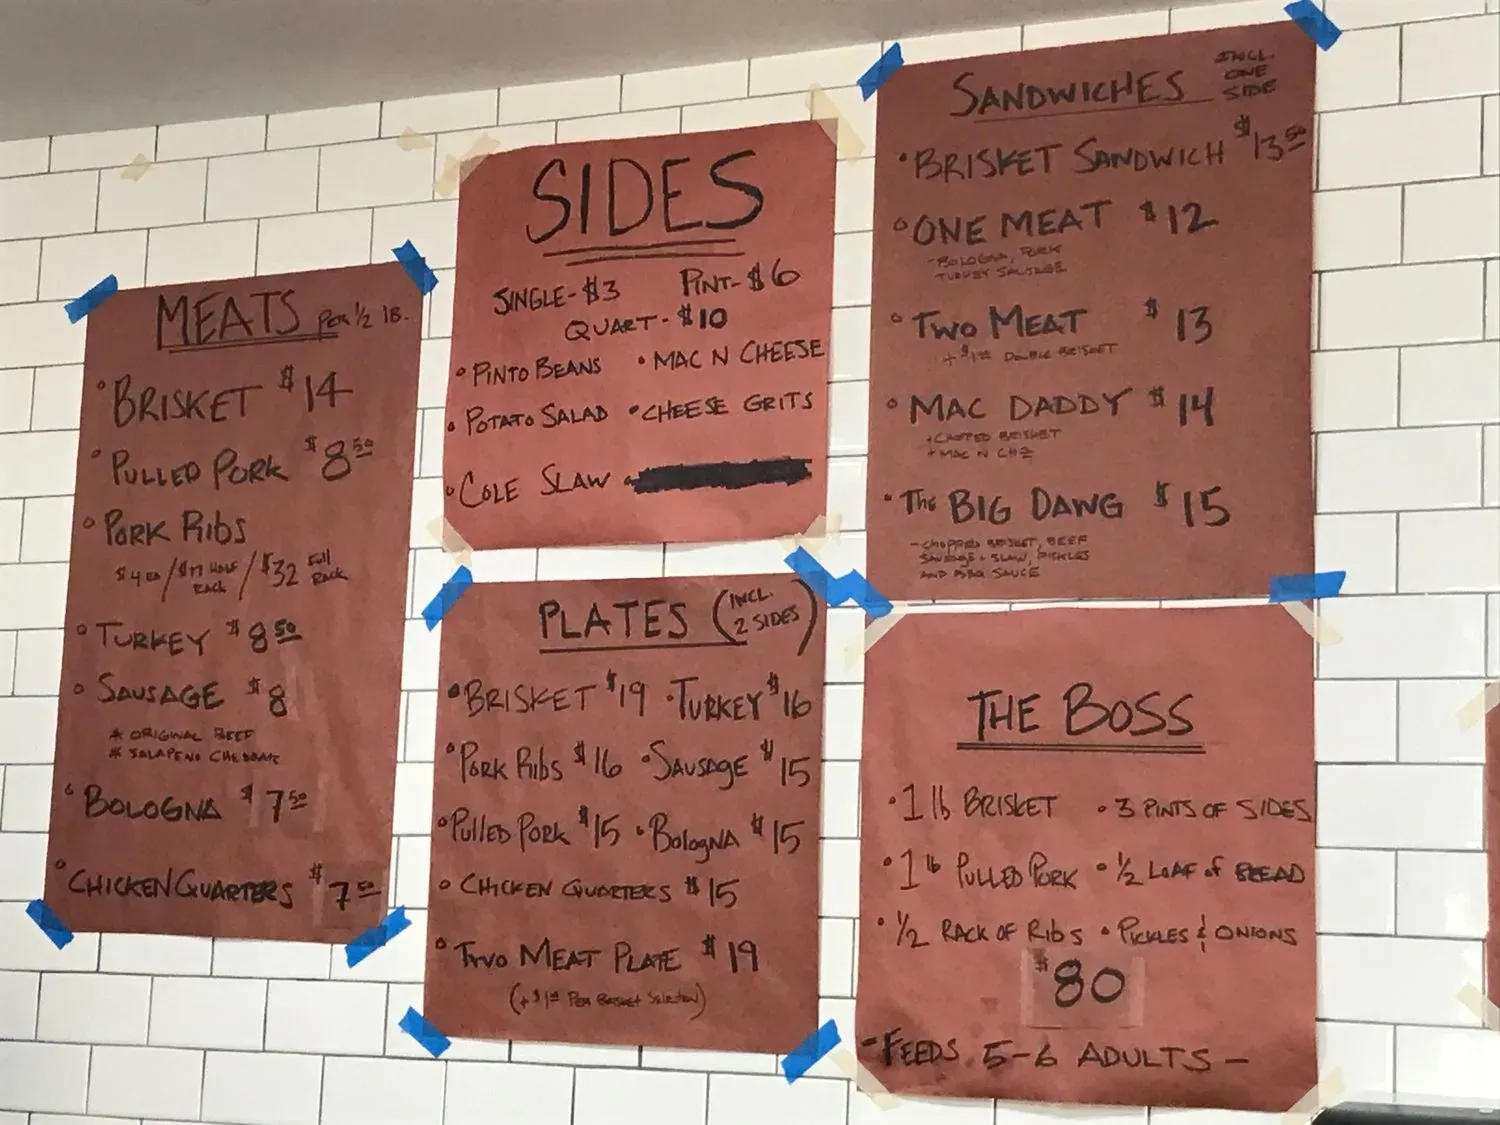 MEATS PER 1/2 lB.
• BRISKET $14
• PULLED PORK $8.50
• PORK RIBS
$4 EA / $17 HALF RACK / $32 Full RACK
• TURKEY $8.50
• SAUSAGE $8
* ORIGINAL BEEF
* JALAPENO CHEDDAR
• BOLOGNA $7.50
• CHICKEN QUARTERS $7.50
SIDES
SINGLE-$3 PINT-$6
QUART-$10
• PINTO BEANS • MAC N CHEESE
• POTATO SALAD • CHEESE GRITS
• COLE SLAW
PLATES (INCL. 2 SIDES)
• BRISKET $19 • TURKEY $16
• PORK RIBS $16 • SAUSAGE $15
• PULLED PORK $15 • BOLOGNA $15
• CHICKEN QUARTERS $15
• TWO MEAT PLATE $19
(+ $1 PER BRISKET SELECTION)
SANDWICHES INCL. ONE SIDE
• BRISKET SANDWICH $13.50
• ONE MEAT $12
- BOLOGNA, PORK
TURKEY SAUSAGE
• TWO MEAT $13
+ $1 DOUBLE BRISKET
• MAC DADDY $14
+ CHOPPED BRISKET
+ MAC N CHZ
• The BIG DAWG $15
- CHOPPED BRISKET, BEEF
SAUSAGE + SLAW, PICKLES
AND BBQ SAUCE
THE BOSS
• 1 lb BRISKET • 3 PINTS OF SIDES
• 1 lb PULLED PORK • 1/2 LOAF of BREAD
• 1/2 RACK OF RIBS • PICKLES & ONIONS
$80
- FEEDS 5-6 ADULTS -